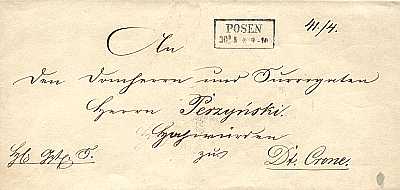 POSEN
41./4.
An
den Domherrn und Surrogaten
Herrn Perzyński.
Hochwürden
zu
Dt. Crone.